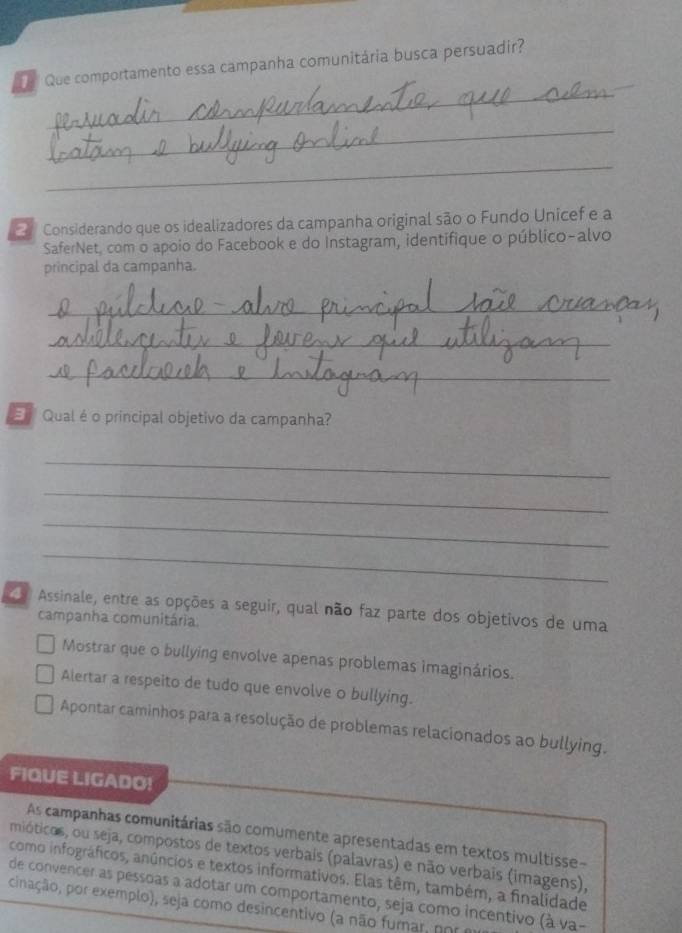 1 Que comportamento essa campanha comunitária busca persuadir?
persuadir comportamento que com
batam o bullying online
2 Considerando que os idealizadores da campanha original são o Fundo Unicef e a
SaferNet, com o apoio do Facebook e do Instagram, identifique o público-alvo
principal da campanha.
o público-alvo principal são crianças,
adolescentes e jovens que utilizam
o Facebook e Instagram
3 Qual é o principal objetivo da campanha?
4 Assinale, entre as opções a seguir, qual não faz parte dos objetivos de uma
campanha comunitária.
Mostrar que o bullying envolve apenas problemas imaginários.
Alertar a respeito de tudo que envolve o bullying.
Apontar caminhos para a resolução de problemas relacionados ao bullying.
FIQUE LIGADO!
As campanhas comunitárias são comumente apresentadas em textos multisse-
mióticos, ou seja, compostos de textos verbais (palavras) e não verbais (imagens),
como infográficos, anúncios e textos informativos. Elas têm, também, a finalidade
de convencer as pessoas a adotar um comportamento, seja como incentivo (à va-
cinação, por exemplo), seja como desincentivo (a não fumar, por